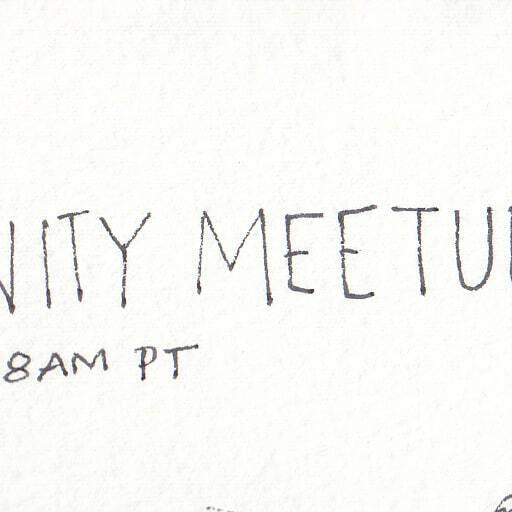 NITY MEETU
8AM PT